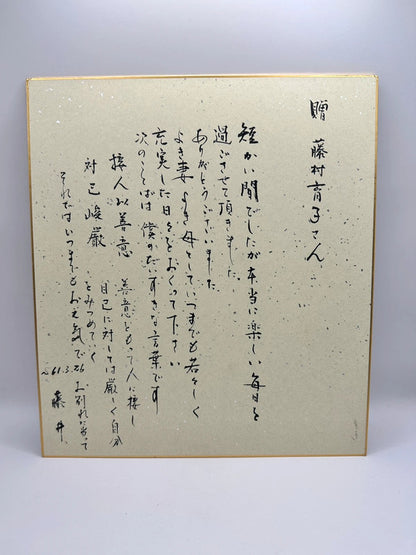 贈 藤村育子さん
短かい間でしたが本当に楽しい毎日を
過ごさせて頂きました
ありがとうございました
よき妻 よき母としていつまでも若々しく
充実した日々をおくって下さい
次のことばは僕のだいすきな言葉です
接人以善意 善意をもって人に接し
対己峻厳 自己に対しては厳しく自分
をみつめていく
それではいつまでもお元気で
61.3.26 お別れに当って
藤井